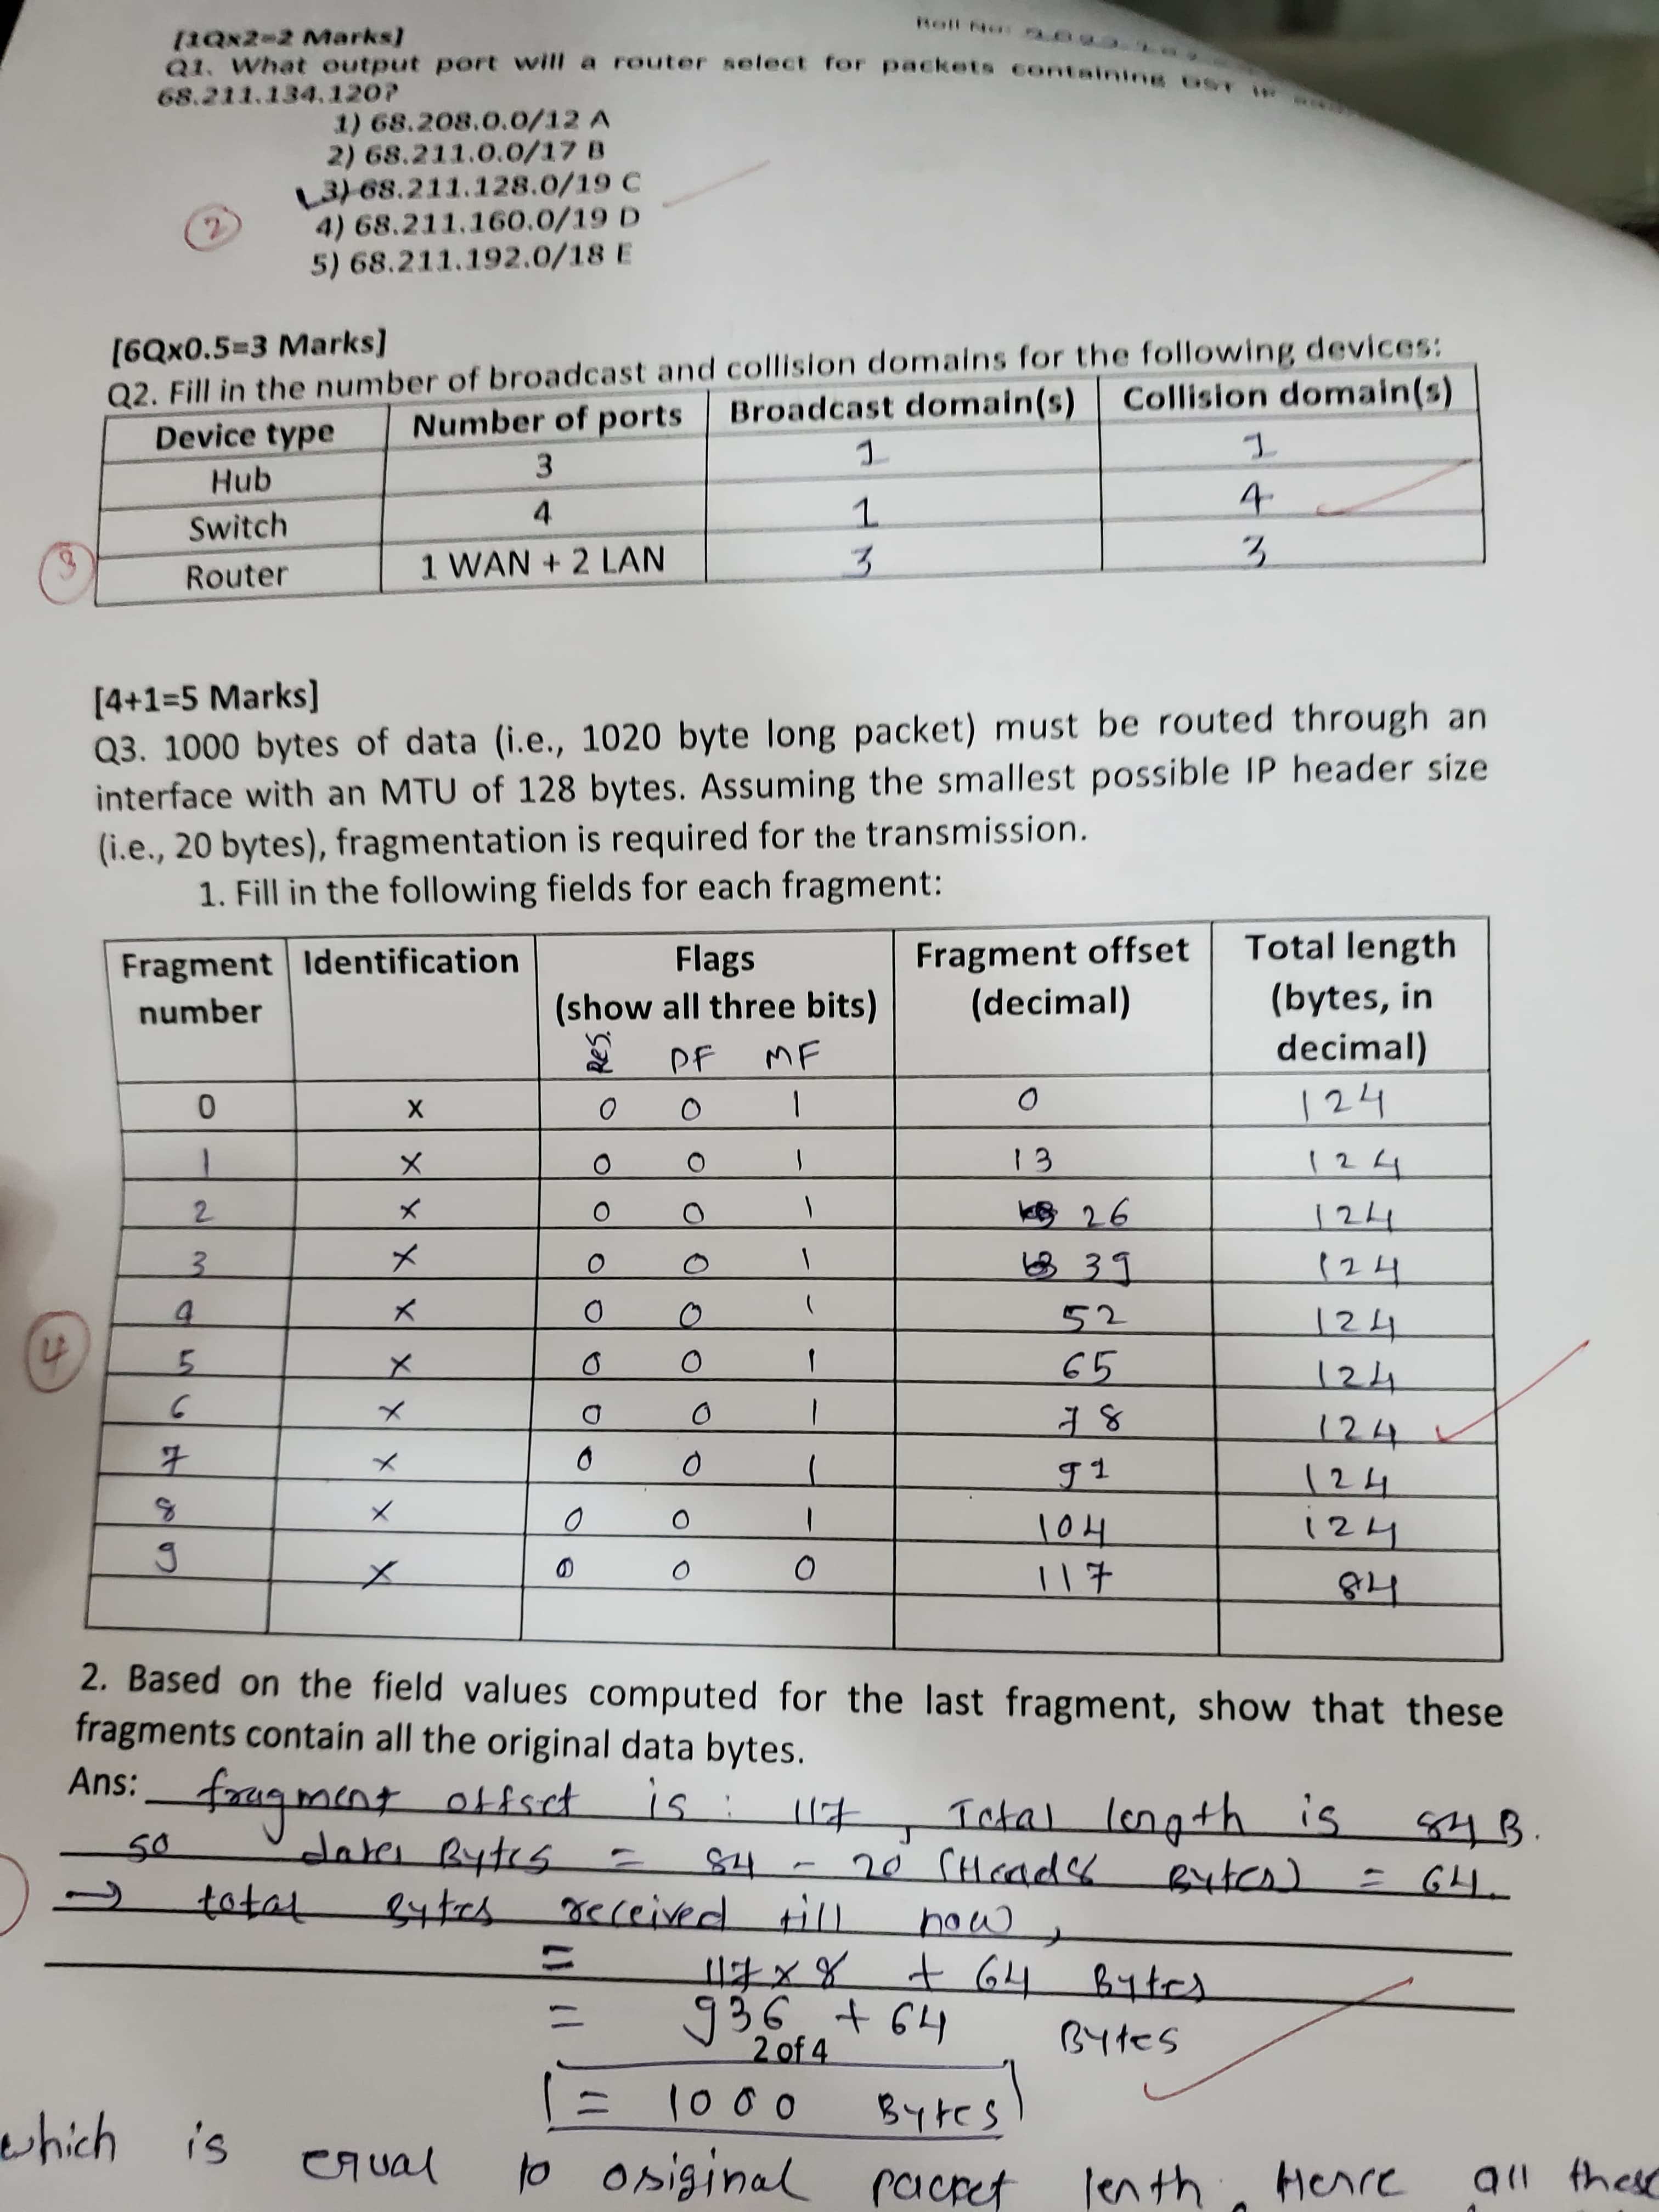 Roll No:
[1Qx2=2 Marks]
Q1. What output port will a router select for packets containing DST IP
68.211.134.120?
1) 68.208.0.0/12 A
2) 68.211.0.0/17 B
3) 68.211.128.0/19 C
4) 68.211.160.0/19 D
5) 68.211.192.0/18 E
2
[6Qx0.5=3 Marks]
Q2. Fill in the number of broadcast and collision domains for the following devices:
Device type Number of ports Broadcast domain(s) Collision domain(s)
Hub 3 1 1
Switch 4 1 4
Router 1 WAN + 2 LAN 3 3
3
[4+1=5 Marks]
Q3. 1000 bytes of data (i.e., 1020 byte long packet) must be routed through an
interface with an MTU of 128 bytes. Assuming the smallest possible IP header size
(i.e., 20 bytes), fragmentation is required for the transmission.
1. Fill in the following fields for each fragment:
Fragment number Identification Flags (show all three bits) Fragment offset (decimal) Total length (bytes, in decimal)
Res. DF MF
0 x 0 0 1 0 124
1 x 0 0 1 13 124
2 x 0 0 1 26 124
3 x 0 0 1 39 124
4 x 0 0 1 52 124
5 x 0 0 1 65 124
6 x 0 0 1 78 124
7 x 0 0 1 91 124
8 x 0 0 1 104 124
9 x 0 0 0 117 84
4
2. Based on the field values computed for the last fragment, show that these
fragments contain all the original data bytes.
Ans: fragment offset is : 117, Total length is 84 B.
so data Bytes = 84 - 20 (Header Bytes) = 64.
→ total Bytes received till now,
= 117 x 8 + 64 Bytes
= 936 + 64 Bytes
2 of 4
= 1000 Bytes
which is equal to original packet lenth. Hence all these